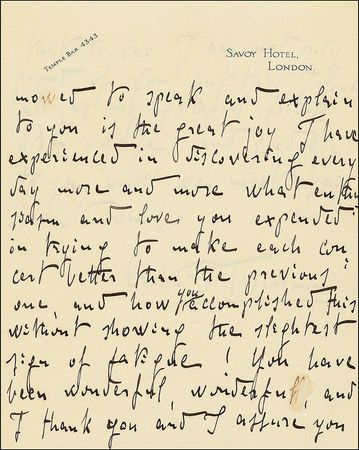 TEMPLE BAR 4343
SAVOY HOTEL,
LONDON.
mowed to speak and explain
to you is the great joy I have
experienced in discovering every
day more and more what enthu
siasm and love you expended
in trying to make each con
cert better than the previous
one, and how you accomplished this
without showing the slightest
sign of fatigue! You have
been wonderful, wonderful, and
I thank you and I assure you